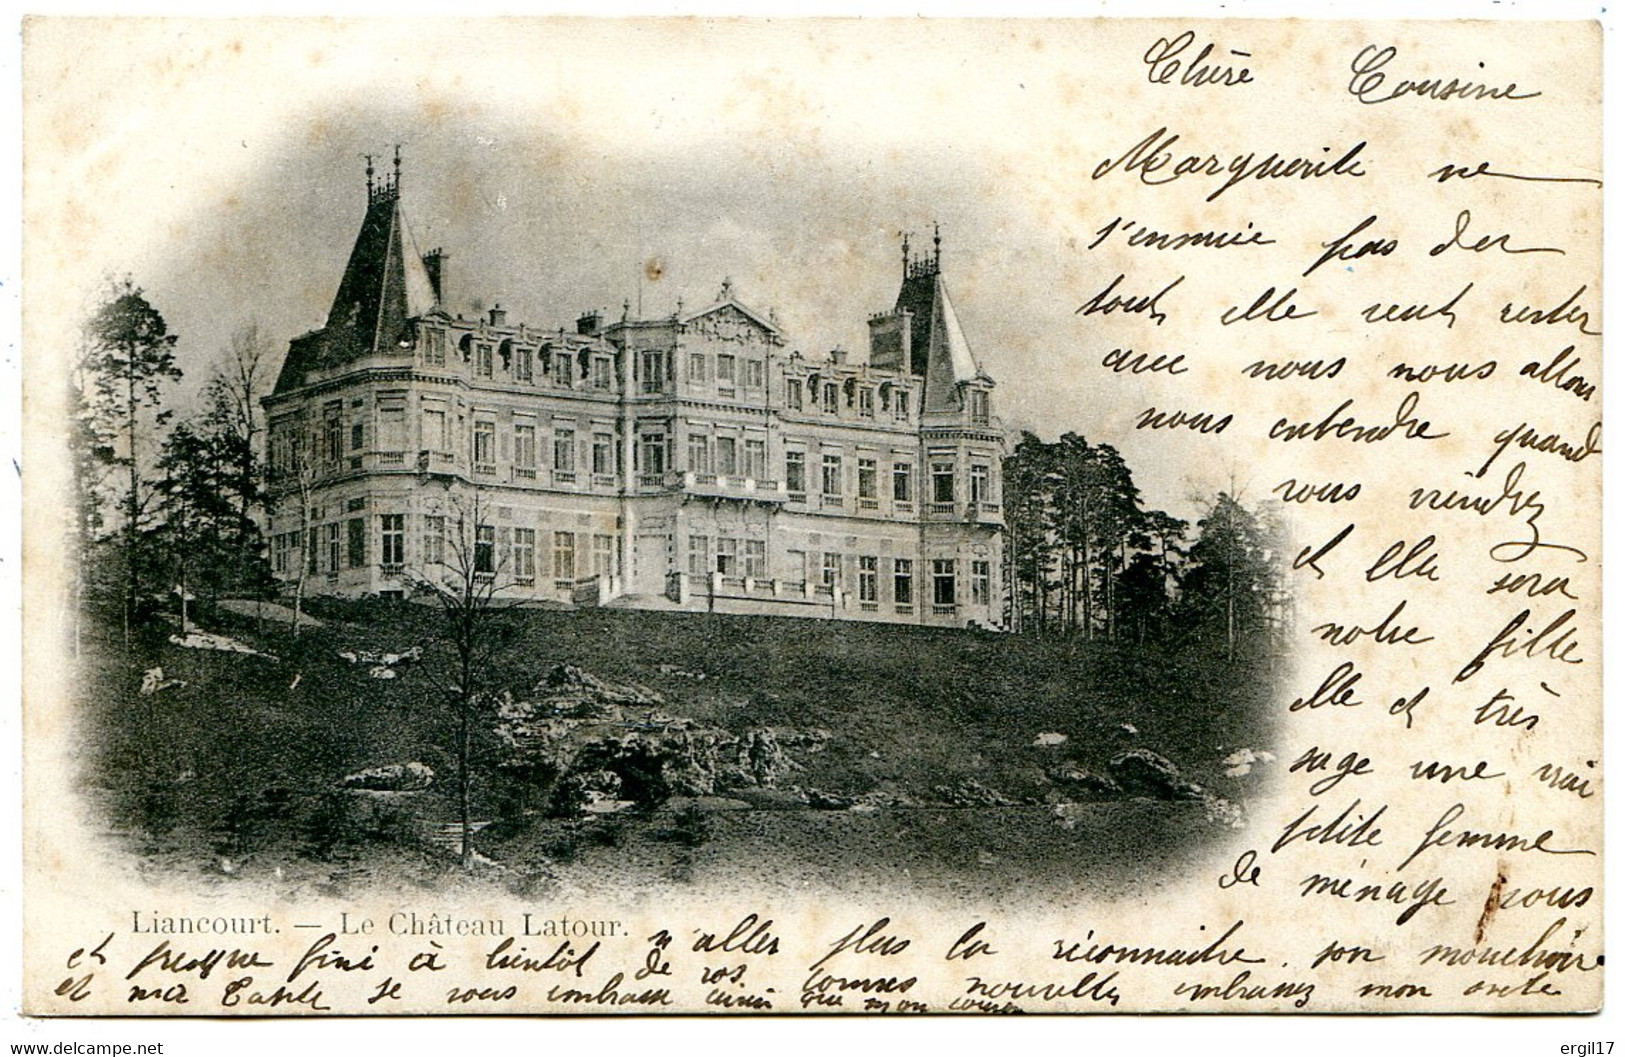 Chère Cousine
Marguerite ne
s'ennuie pas du
tout elle veut rester
avec nous nous allons
nous entendre quand
vous viendrez
et elle sera
notre fille
elle et très
sage une vrai
petite femme
de ménage vous
n'aller plus la réconnaitre. son mouchoire
et presque fini à bientôt de vos bonnes nouvelles embrassez mon oncle
et ma Tante je vous embrasse ainsi que mon cousin
Liancourt. — Le Château Latour.
ergil17
delcampe.net